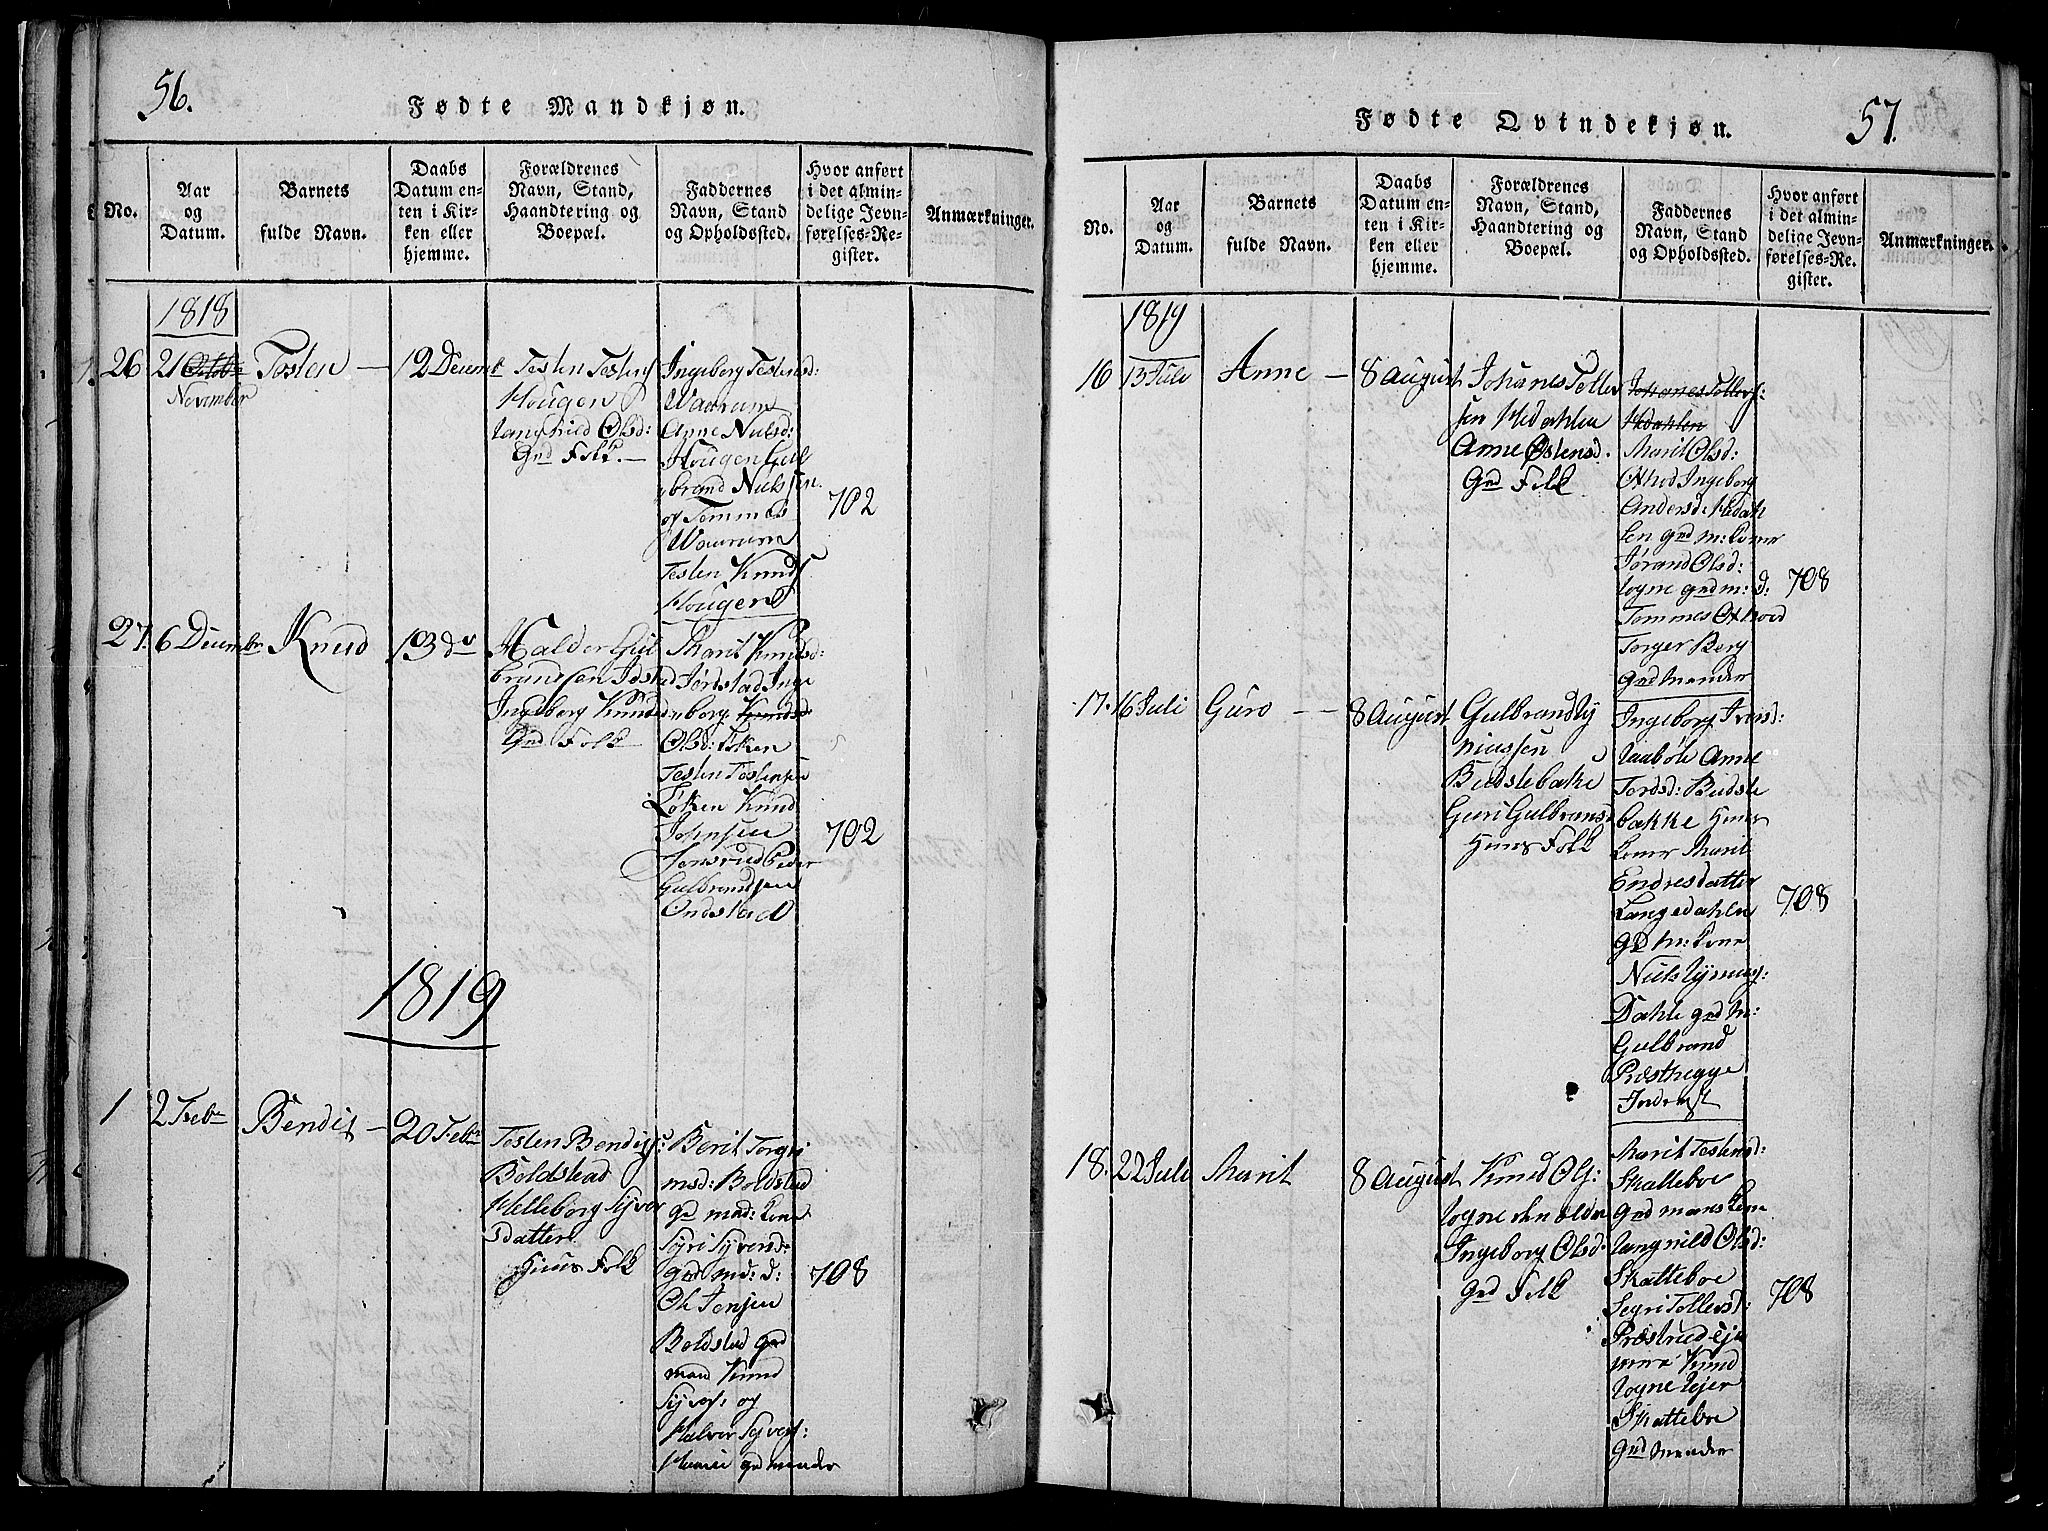 56.
Fødte Mandkjøn.
No.
Aar
og
Datum.
Barnets
fulde Navn.
Daabs
Datum en-
ten i Kir-
ken eller
hjemme.
Forældrenes
Navn, Stand,
Haandtering og
Boepæl.
Faddernes
Navn, Stand
og Opholdssted.
Hvor anført
i det almin-
delige Jevn-
førelses-Re-
gister.
Anmærkninger.
1818
26
21 Octobr
November
Tosten
12 Decemb
Tosten Tostens
Hougen
Langnild Olsd:
Grd Folk.
Ingeborg Tostensd:
Waarum
Anne Nielsd:
Hougen Gul
brand Nielssen
og Tommes
Waarum
Tosten Knuds
Hougen
702
27.
6 Decembr
Knud
13 do
Halder Gul
brandsen
Ingeborg Knudsd
Grd Folk
Marit Knudsd:
Jørstad Inge
borg Knudsd
Olsd: Loken
Tosten Tostensen
Løken Knud
Johnsen
Jonsrud Peder
Gulbrandsen
Ondstad
702
1819
1
2 Febr
Bendit
20 Febr
Tosten Bendits:
Boldstad
Helleborg Syver
sdatter
Huus Folk
Berit Torgri
msd: Boldstad
grd mad: kone
Syri Syversd:
grd md: d:
Ole Jonsen
Boldstad grd
mand Knud
Syvers: og
Halver Syvers:
grd mænder
708
57.
Fødte Qvindekjøn.
No.
Aar
og
Datum.
Barnets
fulde Navn.
Daabs
Datum en-
ten i Kir-
ken eller
hjemme.
Forældrenes
Navn, Stand,
Haandtering og
Boepæl.
Faddernes
Navn, Stand
og Opholdssted.
Hvor anført
i det almin-
delige Jevn-
førelses-Re-
gister.
Anmærkninger.
1819
16
13 Juli
Anne
8 August
Johanes Toller
sen Medahlen
Anne Østensd.
Grd Folk
Johanes Tollers:
Medahlen
Marit Olsd:
Oxhod Ingeborg
Andersd Medah
len grd m: koner
Jørand Olsd:
Logne grd m: d:
Tommes Oxhod
Torger Berg
Grd mænder
708
17.
16 Juli
Guro
8 August
Gulbrand Sy
niussen
Budslebake
Guri Gulbransd
Huus Folk
Ingeborg Iversd:
Anne
Tordsd: Budsle
bakke Huus
koner Marit
Endresdatter
Langedahlen
grd m: kone
Niels Lynius:
Dahle grd m:
Gulbrand
Præsthegge
Inderst
708
18.
22 Juli
Marit
8 August
Knud Ols:
Logne den ældre
Ingeborg Olsd.
Grd Folk
Marit Tostensd:
Skattebøe
grd mans kone
Langnild Olsd:
Skattebøe
Segri Tollersd:
Præstrud
Knud
Logne Lejer
Skattebøe
Grd mænder
708